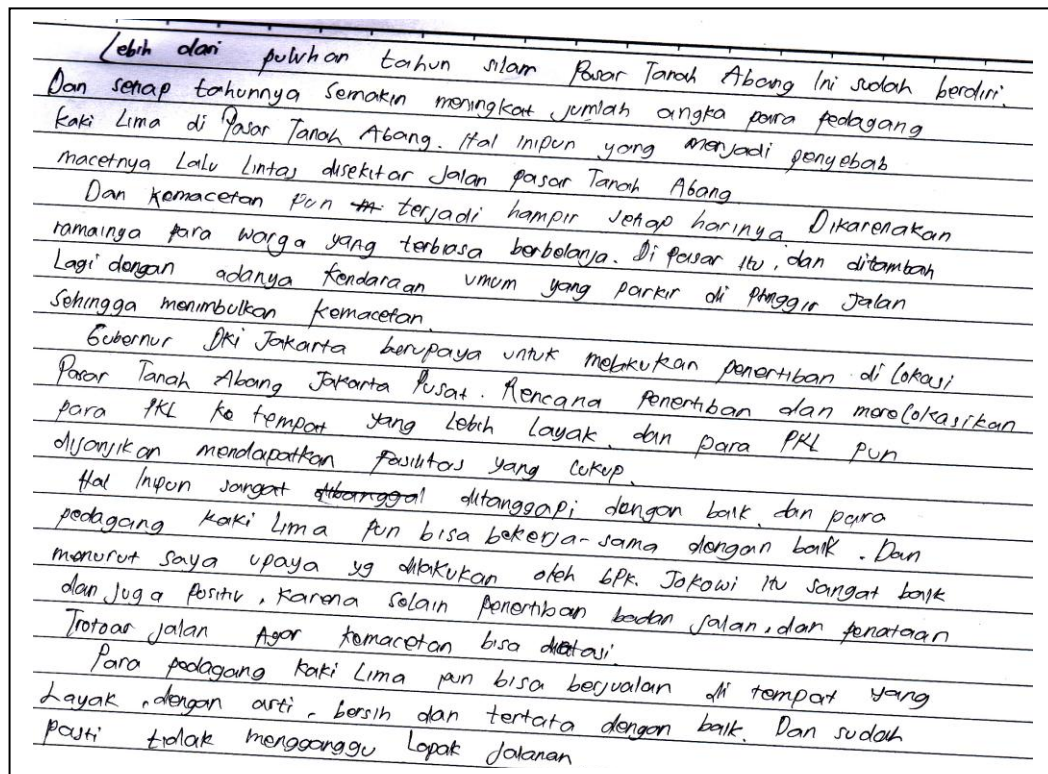 Lebih dari puluhan tahun silam Pasar Tanah Abang Ini sudah berdiri.
Dan setiap tahunnya semakin meningkat jumlah angka para pedagang
kaki Lima di Pasar Tanah Abang. Hal inipun yang menjadi penyebab
macetnya Lalu Lintas disekitar Jalan pasar Tanah Abang
Dan kemacetan pun terjadi hampir setiap harinya Dikarenakan
ramainya para warga yang terbiasa berbelanja. Di pasar itu, dan ditambah
Lagi dengan adanya kendaraan umum yang parkir di pinggir Jalan
Sehingga menimbulkan kemacetan.
Gubernur DKI Jakarta berupaya untuk melakukan penertiban di Lokasi
Pasar Tanah Abang Jakarta Pusat. Rencana Penertiban dan merelokasikan
para PKL ke tempat yang Lebih Layak, dan para PKL pun
dijanjikan mendapatkan Fasilitas yang cukup.
Hal Inipun sangat dibanggal ditanggapi dengan baik, dan para
pedagang kaki Lima pun bisa bekerja-sama dengan baik. Dan
menurut saya upaya yg dilakukan oleh bpk. Jokowi itu sangat baik
dan Juga Positiv, karena selain penertiban badan jalan, dan penataan
Trotoar jalan Agar kemacetan bisa diatasi.
Para pedagang kaki Lima pun bisa berjualan di tempat yang
Layak, dengan arti, bersih dan tertata dengan baik. Dan sudah
pasti tidak mengganggu Lapak Jalanan